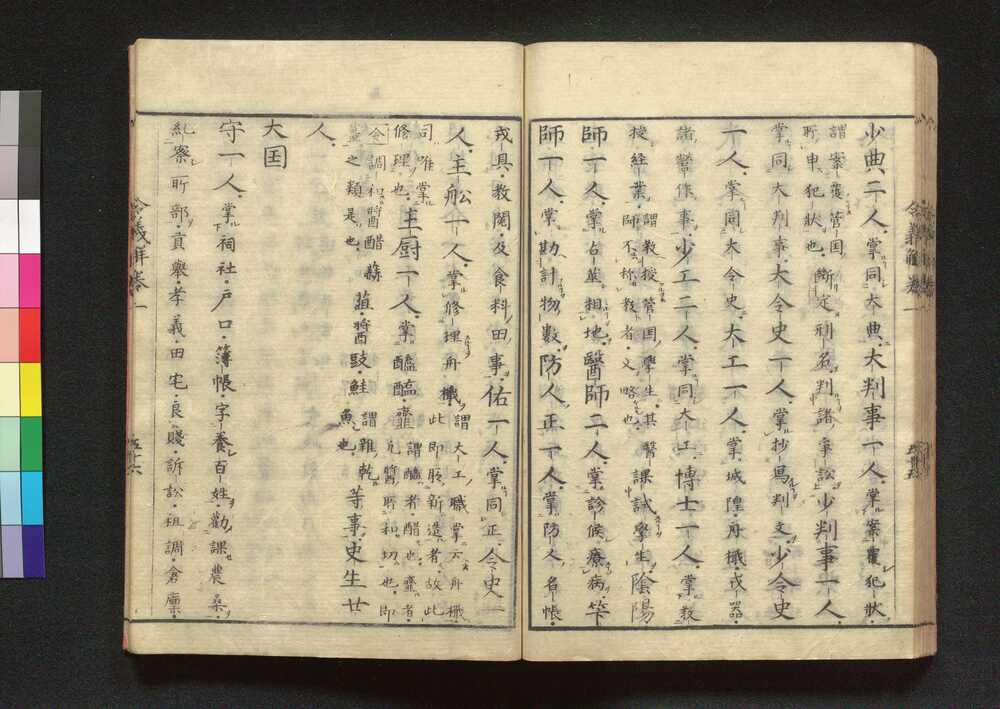 令義解巻一 五十五
少典二人。掌同大典。大判事一人。掌案覆犯状。
謂案覆管国
所申犯状也。断定刑名判諸争訟。少判事一人。
掌同大判事。大令史一人。掌抄写判文。少令史
一人。掌同大令史。大工一人。掌城隍・舟檝・戎器・
諸営作事。少工二人。掌同大工。博士一人。掌教
授経業 謂教授管国学生其醫
師不称教者文略也 課試學生。陰陽
師一人。掌占筮相地。醫師二人。掌診候療病。竿
師一人。掌勘計物数。防人正一人。掌防人名帳・
戎具・教閲・及食料田事。佑一人。掌同正。令史一
人。主舩一人。掌修理舟檝。謂大工職掌云舟檝
此即所新造者故此
司唯掌
修理也。主厨一人。掌醯醢韲 謂醯者醋也韲者
凡醬所和切也即
今調和醬醋蒜
薑之類是也 葅・醬豉鮭 謂雜乾
魚也 等事。史生廿
人。
大国
守一人。掌祠社・戸口・簿帳・字養百姓・勧課農桑・
糺察所部・貢舉・孝義・田宅・良賤・訴訟・租調・倉廩・
令義解巻一 五十六